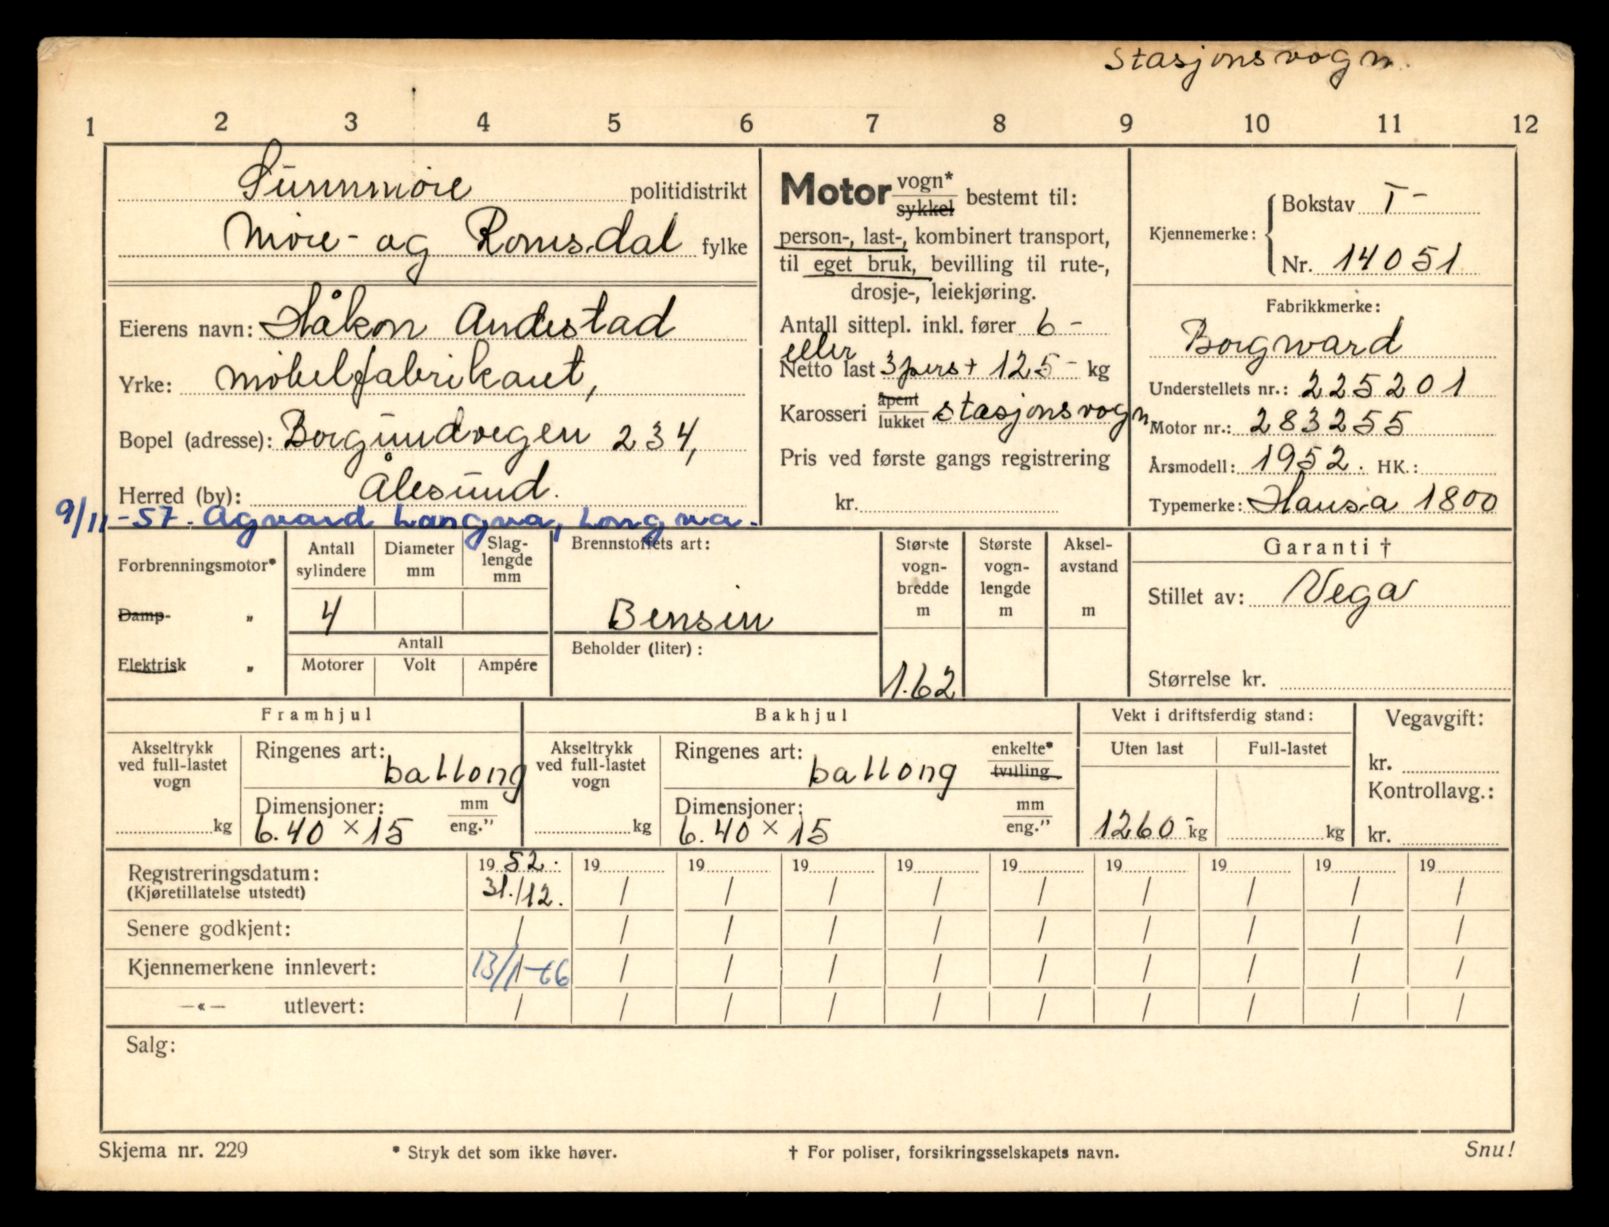 Stasjonsvogn.
1 2 3 4 5 6 7 8 9 10 11 12
Sunnmøre politidistrikt
Møre- og Romsdal fylke
Eierens navn: Håkon Andestad
Yrke: møbelfabrikant,
Bopel (adresse): Borgundvegen 234,
Herred (by): Ålesund.
9/11-57. Agvard Langva, Longva.
Motor vogn* sykkel bestemt til:
person-, last-, kombinert transport,
til eget bruk, bevilling til rute-,
drosje-, leiekjøring.
Antall sittepl. inkl. fører 6 -
eller
Netto last 3 pers + 125 - kg
Karosseri åpent lukket stasjonsvogn
Pris ved første gangs registrering
kr.
Kjennemerke: Bokstav T -
Nr. 14051
Fabrikkmerke:
Borgward
Understellets nr.: 225201
Motor nr.: 283255
Årsmodell: 1952. HK.:
Typemerke: Hansa 1800
Forbrenningsmotor*
Damp- "
Elektrisk "
Antall sylindere Diameter mm Slag-lengde mm
4
Antall
Motorer Volt Ampére
Brennstoffets art:
Bensin
Beholder (liter):
Største vogn-bredde m Største vogn-lengde m Aksel-avstand m
1.62
Garanti †
Stillet av: Vega
Størrelse kr.
Framhjul
Akseltrykk ved full-lastet vogn
kg
Ringenes art: ballong
Dimensjoner: mm
6.40 × 15 eng."
Bakhjul
Akseltrykk ved full-lastet vogn
kg
Ringenes art: ballong enkelte* tvilling
Dimensjoner: mm
6.40 × 15 eng."
Vekt i driftsferdig stand:
Uten last Full-lastet
1260 - kg kg
Vegavgift:
kr.
Kontrollavg.:
kr.
Registreringsdatum: 19 52. 19 19 19 19 19 19 19 19 19
(Kjøretillatelse utstedt) 31./12. / / / / / / / / /
Senere godkjent: / / / / / / / / / /
Kjennemerkene innlevert: 13/1-66 / / / / / / / / /
—«— utlevert: / / / / / / / / / /
Salg:
Skjema nr. 229 * Stryk det som ikke høver. † For poliser, forsikringsselskapets navn. Snu!